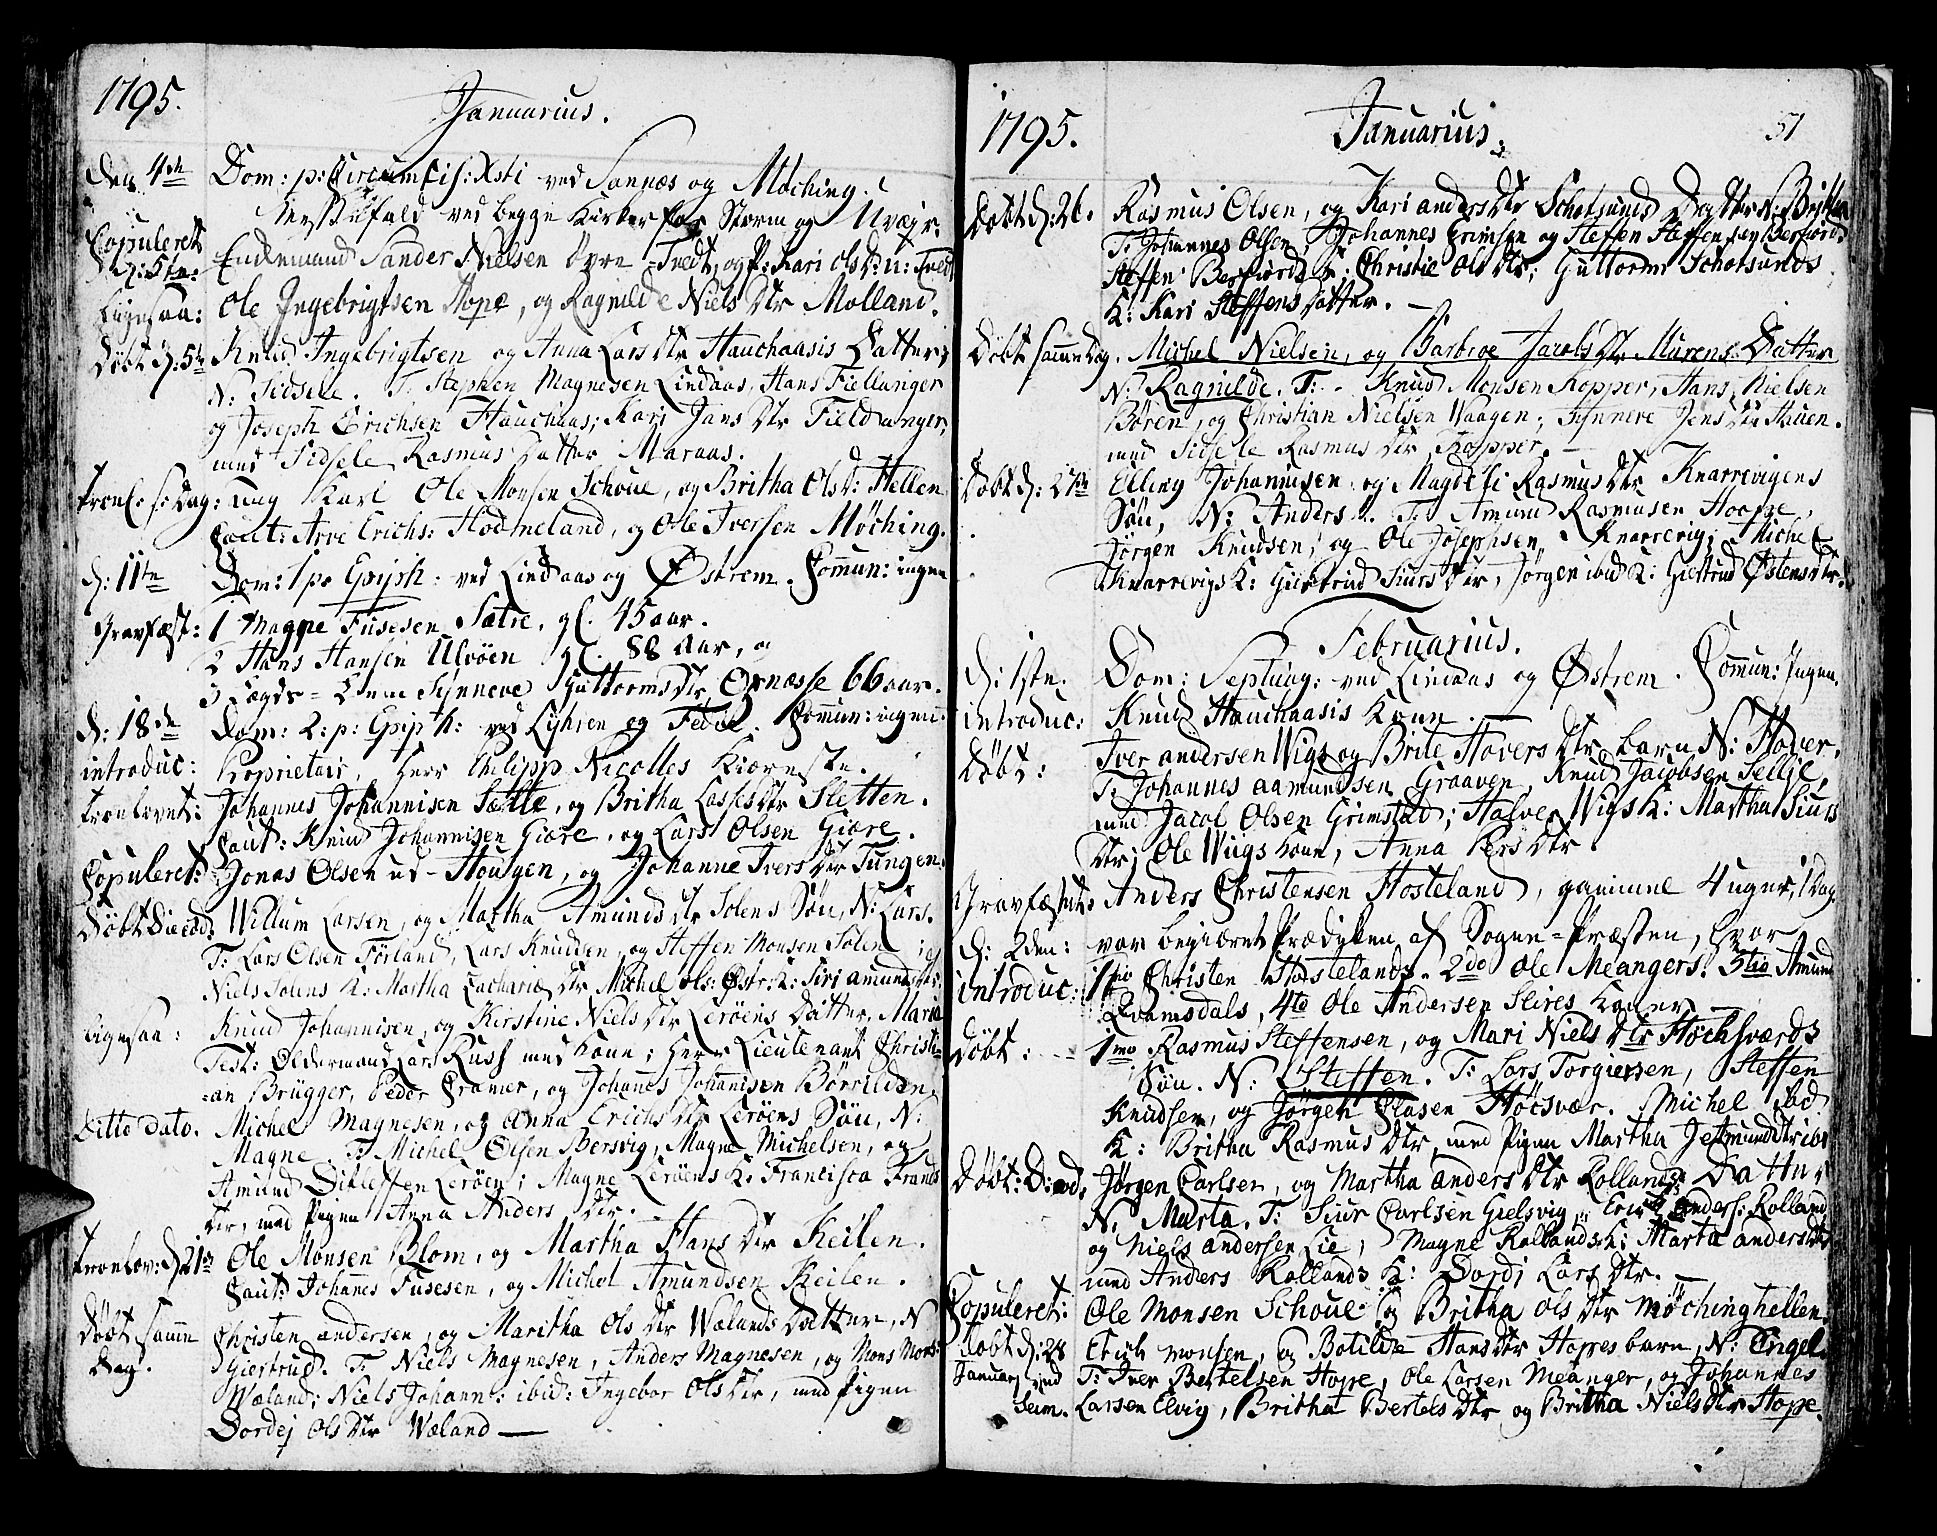 1795.
Januarius.
Den 4de Dom: p: Circumcis: Xsti ved Sannæs og Møching.
Messefald ved begge Kirker for Storm og Uveyr.
Copuleret d: 5te: Enkemand Sander Nielsen Øvre-Tvedt, og P: Kari Ols D: n: Tvedt
Ligesaa: Ole Ingebrigtsen Hope, og Ragnilde Niels Dtr Molland.
Døbt d: 5te Knud Ingebrigtsen og Anna Lars Dtr Hauchaasis Datter,
N: Sidsele. T: Stephen Magnesen Lindaas, Hans Fiellanger
og Joseph Erichsen Hauchaas; Kari Jans Dtr Fieldanger,
med Sidsele Rasmus Datter Maraas.
Trool: s: Dag: ung Karl Ole Monsen Schoue, og Britha Ols D: Hellen
Caut: Arve Erichs: Hodneland, og Ole Iversen Møching.
d: 11te Dom: 1 po Epiph: ved Lindaas og Østrem. Commun: ingen
Gravfæst: 1 Magne Fusesen Sætre, gl. 45 aar.
2 Hans Hansen Ulvøen gl. 88 Aar, og
3 Lægds-Lem Synneve Guttorms Dtr Ornæsse 66 aar.
d: 18de Dom: 2: p: Epiph: ved Lyhren og Fedie. Commun: ingen.
introduc: Proprietair, Herr Philipp Nicolles Kiæreste.
Troolovet: Johannes Johannisen Sætte, og Britha Lasses Dtr Sletten.
Caut: Knud Johannisen Giære, og Lars Olsen Giære.
Copuleret: Jonas Olsen ud-Hougen, og Johanne Ivers Dtr Tungen.
Døbt die eod: Willum Larsen, og Martha Amunds Dtr Solens Søn, N: Lars.
T: Lars Olsen Førland, Lars Knudsen, og Steffen Monsen Solen; og
Niels Solens K: Martha Zachariæ Dtr Michel Ols: Østr: K: Siri Amunds Dtr.
Ligesaa: Knud Johannisen, og Kirstine Niels Dtr Lerøens Datter, Maria
Test: Oldermand Lars Russ med Kone; Herr Lieutenant Christi-
-an Brügger, Peder Cramer, og Johanes Johannisen Børrilden.
Ditto dato. Michel Magnesen, og Anna Erichs Dtr Lerøens Søn, N:
Magne. T: Michel Olsen Bersvig, Magne Michelsen, og
Amund Ditlefsen Lerøen; Magne Lerøens K: Francisca Frands
Dtr, med Pigen Anna Anders Dtr.
Troolov: d: 21de Ole Monsen Blom, og Martha Hans Dtr Keilen.
Caut: Johannes Fusesen, og Michel Amundsen Keilen.
Døbt samme Dag. Christen Andersen, og Maritha Ols Dtr Wælands Datter, N
Giertrud. T: Niels Magnesen, Anders Magnesen, og Mons Mons:
Wæland; Niels Johann: ibid: Ingebor Ols Dtr, med Pigen
Dordej Ols Dtr Wæland
1795.
Januarius.
51
Døbt d: 26. Rasmus Olsen, og Kari Anders Dtr Schotsunds Datter N: Britha
T: Johannes Olsen, Johannes Grimsen og Steffen Steffensen Berfiord;
Steffen Berfiords K: Christie Ols Dtr; Guttorm Schotsunds
K: Kari Steffens Datter.
Døbt samme Dag. Michel Nielsen, og Barbroe Jacobs Dtr Murens Datter
N: Ragnilde. T: Knud Monsen Kopper, Hans Nielsen
Børen, og Christian Nielsen Waagen; Synnere Jens Dtr Hauen.
med Sidsele Rasmus Dtr Kopper.
Døbt d: 27de Elling Johannisen og Magdeli Rasmus Dtr Knarrevigens
Søn, N: Anders. T: Amund Rasmusen Hoppe,
Jørgen Knudsen, og Ole Josephsen Knarrevig; Michel
Knarrevigs K: Giertrud Siurs Dtr, Jørgen ibid K: Giertrud Østens Dtr.
Februarius.
d: 1ste. Dom: Septuag: ved Lindaas og Østrem. Commun: Ingen.
introduc: Knud Hauchaasis Kone.
Døbt: Iver Andersen Wigs og Brite Hovers Dtr barn N: Halver.
T: Johannes Aamundsen Graaven, Knud Jacobsen Seilje,
med Jacob Olsen Grimstad; Halver Wigs K: Martha Siurs
Dtr; Ole Wiigs Kone, Anna Pers Dtr.
Gravfæstet: Anders Christensen Hosteland, gammel 4 uger, 1 Dag.
d: 2den: var begiæret Prædiken af Sogne-Præsten, hvor
introduc: 1mo Christen Hostelands. 2do Ole Meangers. 3tio Amund
Qvamsdals, 4to Ole Andersen Seires Koner
Døbt: 1mo Rasmus Steffensen, og Mari Niels Dtr Høchsværds
Søn. N: Steffen. T: Lars Torgiersen, Steffen
Knudsen, og Jørgen Clasen Høcsvær. Michel ibd
K: Britha Rasmus Dtr, med Pigen Martha Jetmunds Dtr ibd
Døbt: D: eod. Jørgen Carlsen, og Martha Anders Dtr Rollands Datter
N: Marta. T: Siur Carlsen Gielsvig, Erich Anders: Rolland
og Niels Andersen Lie; Magne Rollands K: Marta Anders Dtr
med Anders Rollands K: Dordj Lars Dtr.
Copuleret: Ole Monsen Schoue og Britha Ols Dtr Møchinghellen.
Døbt d: 28 Januarj ved Seim. Erich Monsen, og Botilde Hans Dtr Hopes barn, N: Engel.
T: Iver Bertelsen Hope, Ole Larsen Meanger, og Johannes
Larsen Elvig, Britha Bertels Dtr og Britha Niels Dtr Hope.